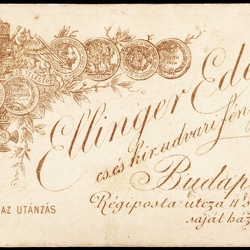 Ellinger Ede
cs. és kir. udvari fén
Budap
Régiposta utcza 11 s
saját ház
AZ UTÁNZÁS